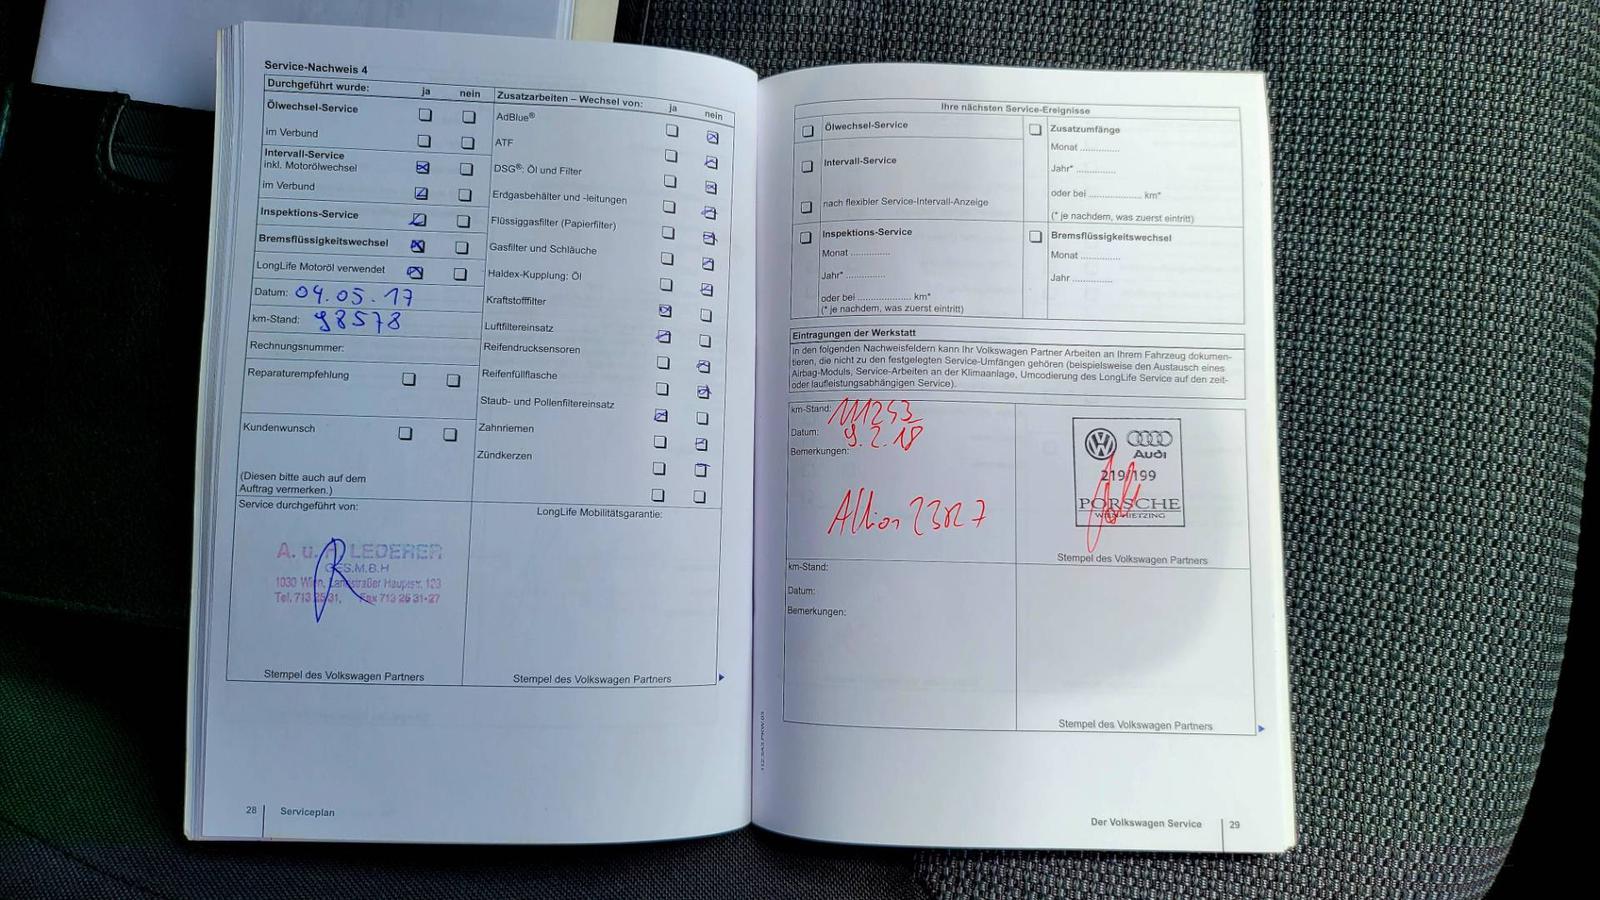 Service-Nachweis 4
Durchgeführt wurde: ja nein
Ölwechsel-Service
im Verbund
Intervall-Service
inkl. Motorölwechsel
im Verbund
Inspektions-Service
Bremsflüssigkeitswechsel
LongLife Motoröl verwendet
Datum: 04.05.17
km-Stand: 98578
Rechnungsnummer:
Reparaturempfehlung
Kundenwunsch
(Diesen bitte auch auf dem
Auftrag vermerken.)
Service durchgeführt von:
A. u. LEDERER
GES.M.B.H
1030 Wien, Landstraßer Hauptstr. 123
Tel. 713 25 31, Fax 713 25 31-27
Stempel des Volkswagen Partners
Zusatzarbeiten – Wechsel von: ja nein
AdBlue®
ATF
DSG®: Öl und Filter
Erdgasbehälter und -leitungen
Flüssiggasfilter (Papierfilter)
Gasfilter und Schläuche
Haldex-Kupplung: Öl
Kraftstofffilter
Luftfiltereinsatz
Reifendrucksensoren
Reifenfüllflasche
Staub- und Pollenfiltereinsatz
Zahnriemen
Zündkerzen
LongLife Mobilitätsgarantie:
Stempel des Volkswagen Partners
28 Serviceplan
Ihre nächsten Service-Ereignisse
Ölwechsel-Service
Intervall-Service
nach flexibler Service-Intervall-Anzeige
Inspektions-Service
Monat ..............
Jahr* ..............
oder bei .................... km*
(* je nachdem, was zuerst eintritt)
Zusatzumfänge
Monat ..............
Jahr* ..............
oder bei .................... km*
(* je nachdem, was zuerst eintritt)
Bremsflüssigkeitswechsel
Monat ..............
Jahr ..............
Eintragungen der Werkstatt
In den folgenden Nachweisfeldern kann Ihr Volkswagen Partner Arbeiten an Ihrem Fahrzeug dokumen-
tieren, die nicht zu den festgelegten Service-Umfängen gehören (beispielsweise den Austausch eines
Airbag-Moduls, Service-Arbeiten an der Klimaanlage, Umcodierung des LongLife Service auf den zeit-
oder laufleistungsabhängigen Service).
km-Stand: 111253
Datum: 9.2.18
Bemerkungen:
Aktion 23R7
Audi
219/199
PORSCHE
WIEN-HIETZING
Stempel des Volkswagen Partners
km-Stand:
Datum:
Bemerkungen:
Stempel des Volkswagen Partners
Der Volkswagen Service 29